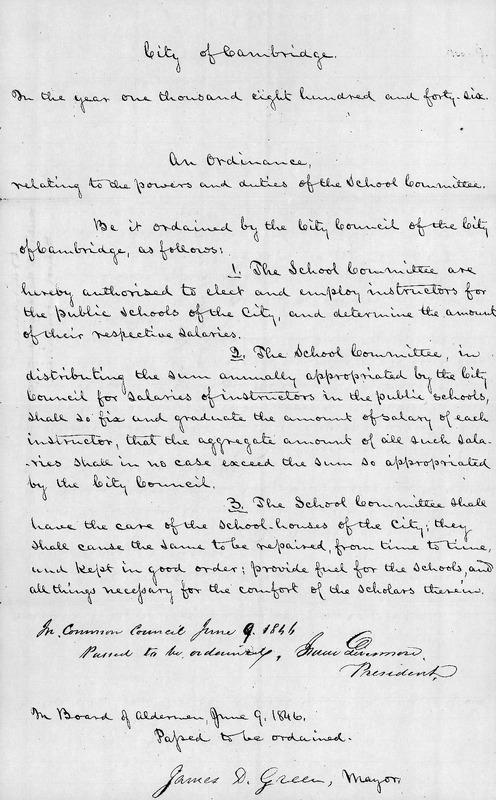 City of Cambridge.
In the year one thousand eight hundred and forty-six.
An Ordinance,
relating to the powers and duties of the School Committee.
Be it ordained by the City Council of the City
of Cambridge, as follows:
1. The School Committee are
hereby authorised to elect and employ instructors for
the public schools of the City, and determine the amount
of their respective salaries.
2. The School Committee, in
distributing the sum annually appropriated by the City
Council for salaries of instructors in the public schools,
shall so fix and graduate the amount of salary of each
instructor, that the aggregate amount of all such sala-
-ries shall in no case exceed the sum so appropriated
by the City Council.
3. The School Committee shall
have the care of the school-houses of the City; they
shall cause the same to be repaired, from time to time,
and kept in good order; provide fuel for the schools, and
all things necessary for the comfort of the scholars therein.
In Common Council June 9. 1846
Passed to be ordained,
President,
In Board of Aldermen, June 9. 1846.
Passed to be ordained.
James D. Green, Mayor